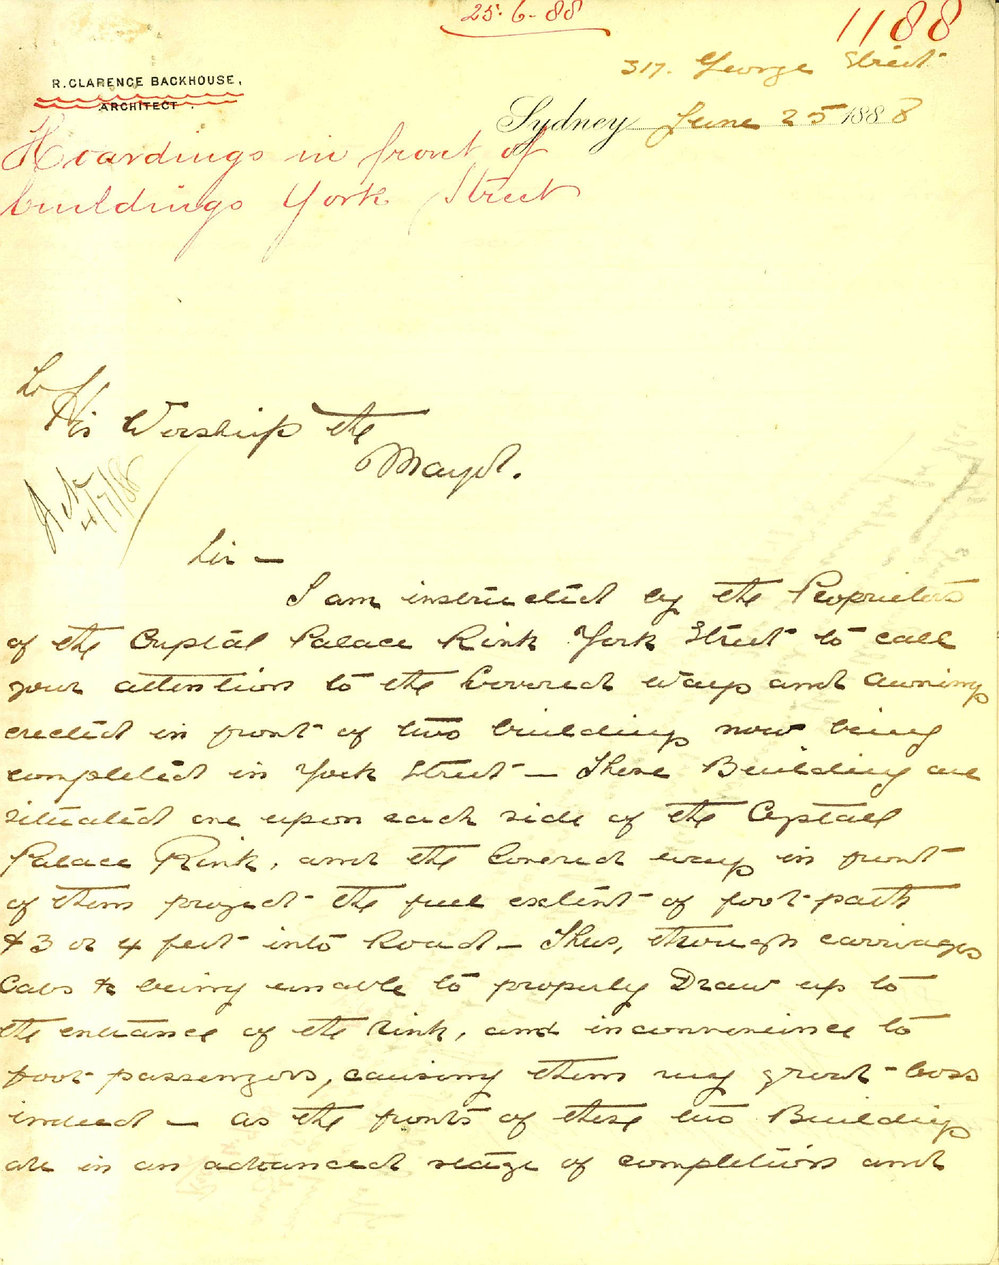 25-6-88
1188
R. CLARENCE BACKHOUSE,
ARCHITECT.
317. George Street
Sydney June 25 1888
Hoardings in front of
buildings York Street
To
His Worship the
Mayor.
4/7/88
Sir —
I am instructed by the Proprietors
of the Crystal Palace Rink York Street to call
your attention to the Covered ways and awnings
erected in front of two buildings now being
completed in York Street — These Buildings are
situated one upon each side of the Crystall
Palace Rink, and the Covered ways in front
of them project the full extent of foot-path
& 3 or 4 feet into Road — Thus, through carriages
Cabs &c being unable to properly Draw up to
the entrance of the Rink, and inconvenience to
foot passengers, causing them very great-loss
indeed — as the fronts of these two Buildings
are in an advanced stage of completion and